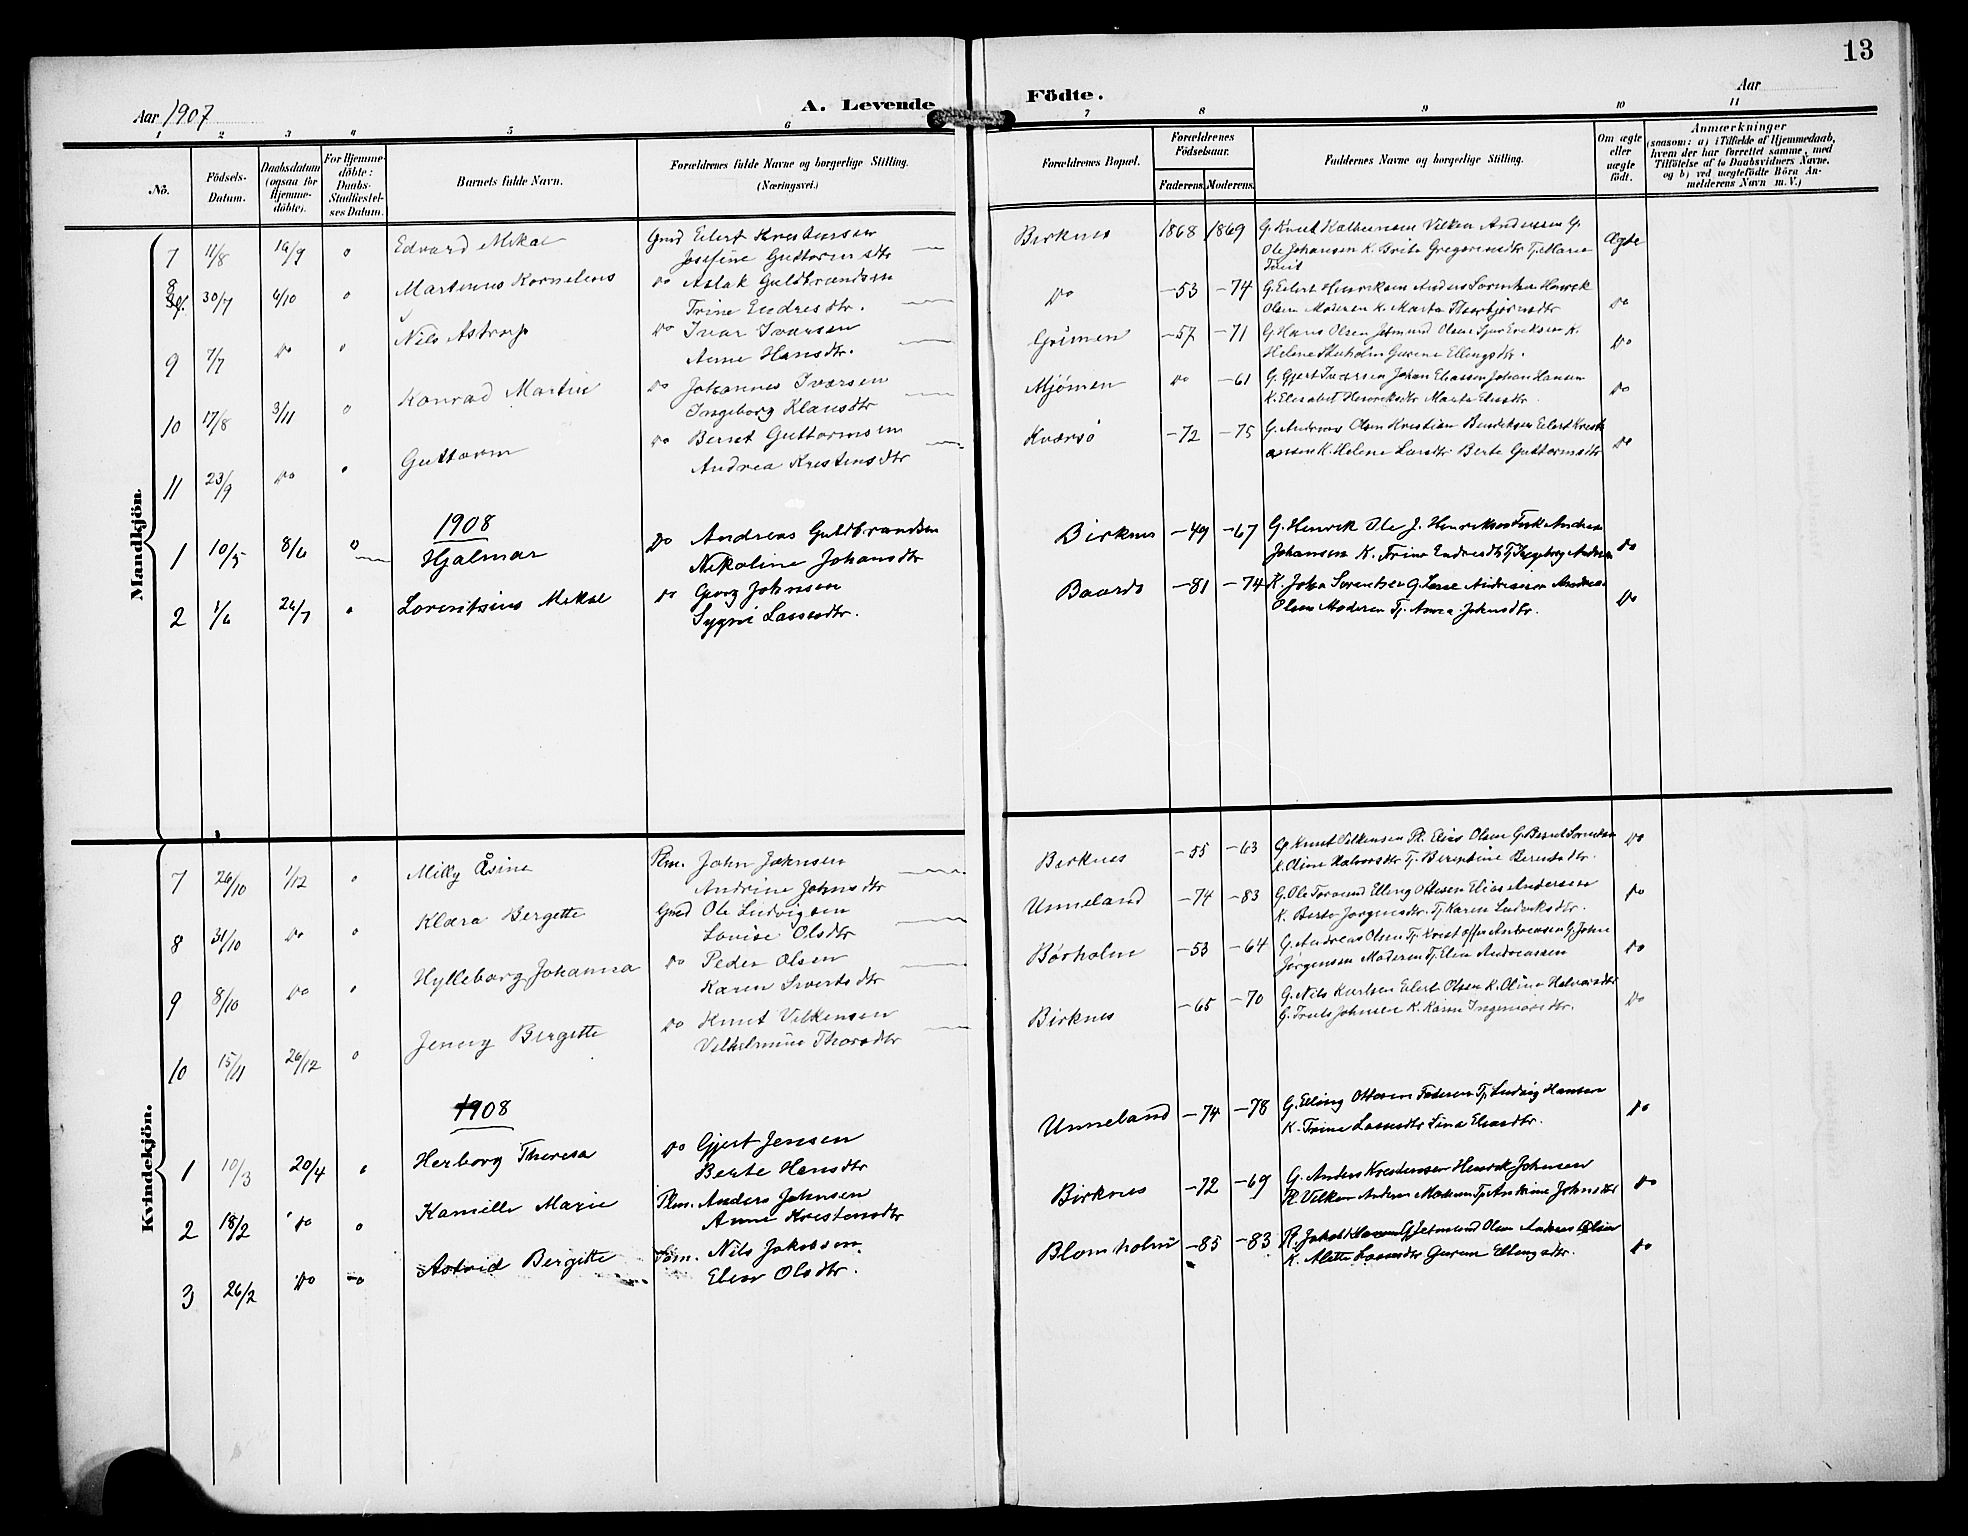 13
Aar 1907
A. Levende Födte.
Aar
1 2 3 4 5 6 7 8 9 10 11
No.
Födsels-
Datum.
Daabsdatum
(ogsaa for
Hjemme-
döbte).
For Hjemme-
döbte:
Daabs-
Stadfæstel-
ses Datum.
Barnets fulde Navn.
Forældrenes fulde Navne og borgerlige Stilling.
(Næringsvei.)
Forældrenes Bopæl.
Forældrenes
Födselsaar.
Faderens. Moderens.
Faddernes Navne og borgerlige Stilling.
Om ægte
eller
uægte
födt.
Anmærkninger
(saasom: a) i Tilfælde af Hjemmedaab,
hvem der har forrettet samme, med
Tilföielse af to Daabsvidners Navne,
og b) ved uægtefödte Börn An-
melderens Navn m. V.)
Mandkjön.
7 11/8 19/9 " Edvard Mikal Gmd Eilert Kristensen Birknes 1868 1869 G. Knut Vilken Andersen G. Ægte
Josefine Guttormsdtr Ole Johansen K. Brite Gregoriusdtr Tj. Marie
8 30/7 4/10 " Martinus Kornelius Do Aslak Guldbrandsen Do -53 -74 G. Eilert Henriksen Anders Henrik Do
Trine Endresdtr. Olsen Moderen K. Marta Thorbjørnsdtr
9 7/7 Do " Nils Astrup Do Ivar Ivarsen Grimen -57 -71 G. Hans Olsen Jetmund Olsen Sjur Eriksen K. Do
Anne Hansdtr. Helene Gurine Ellingsdtr.
10 17/8 3/11 " Konrad Martin Do Johannes Ivarsen Mjømen Do -61 G. Gjert Iversen Johan Eliassen Johan Hansen Do
Ingeborg Klausdtr K. Elisabet Henriksdtr Marta Eliasdtr.
11 23/9 Do " Guttorm Do Bernt Guttormsen Kværsø -72 -75 G. Andreas Olsen Kristian Bendiksen Eilert Krist- Do
Andrea Kristensdtr ansen K. Helene Larsdtr Berte Guttormsdtr
1908
1 10/5 8/6 " Hjalmar Do Andreas Guldbrandsen Birknes -49 -67 G. Henrik Ole J. Henriksen Andreas Do
Nikoline Johansdtr Johansen K. Trine Endresdtr Tj. Ingeborg Andrea
2 1/6 26/7 " Lorentsius Mikal Do Georg Johnsen Baards -81 -74 K. John Sorentsen G. Lasse Andreasen Andreas Do
Sygni Lassesdtr. Olsen Moderen Tj. Anna Johnsdtr.
Kvindekjön.
7 26/10 1/12 " Milly Åsine Plm. John Johnsen Birknes -55 -63 G. Knut Vilkensen Pl. Elias Olsen G. Bernt Do
Andrine Johnsdtr K. Oline Halvorsdtr Tj. Berentsdtr.
8 31/10 Do " Klara Bergette Gmd Ole Ludvigsen Unneland -74 -83 G. Ole Elling Ottesen Elias Andersen Do
Lovise Olsdtr K. Berte Jørgensdtr. Tj. Karen Ludviksdtr.
9 8/10 Do " Hylleborg Johanna Do Peder Olsen Børholm -53 -64 G. Andreas Olsen Tj. Kristoffer Andreassen G. John Do
Karen Sivertsdtr Jørgensen Moderen Tj. Elen Andreassen
10 15/11 26/12 " Jenny Bergitte Do Knut Vilkensen Birknes -65 -70 G. Nils Karlsen Eilert Olsen K. Oline Halvorsdtr Do
Vilhelmine Thorsdtr G. Truls Johnsen K. Karen
1908
1 10/3 20/4 " Herborg Theresa Do Gjert Jensen Unneland -74 -78 G. Elling Ottesen Faderen Tj. Ludvig Hansen Do
Berte Hansdtr K. Trine Lassesdtr Sina Eliasdtr.
2 18/2 Do " Kamille Marie Plm. Anders Johnsen Birknes -72 -69 G. Anders Kristensen Henrik Johnsen Do
Anne Kristensdtr Pl. Vilken Anders Moderen Tj. Andrine Johnsdtr
3 26/2 Do " Astrid Bergitte Tøm. Nils Jakobsen Blomholm -85 -83 Pl. Jakob G. Jetmund Olsen Andreas Olsen Do
Elen Olsdtr. K. Alette Lassesdtr Gurine Ellingsdtr.